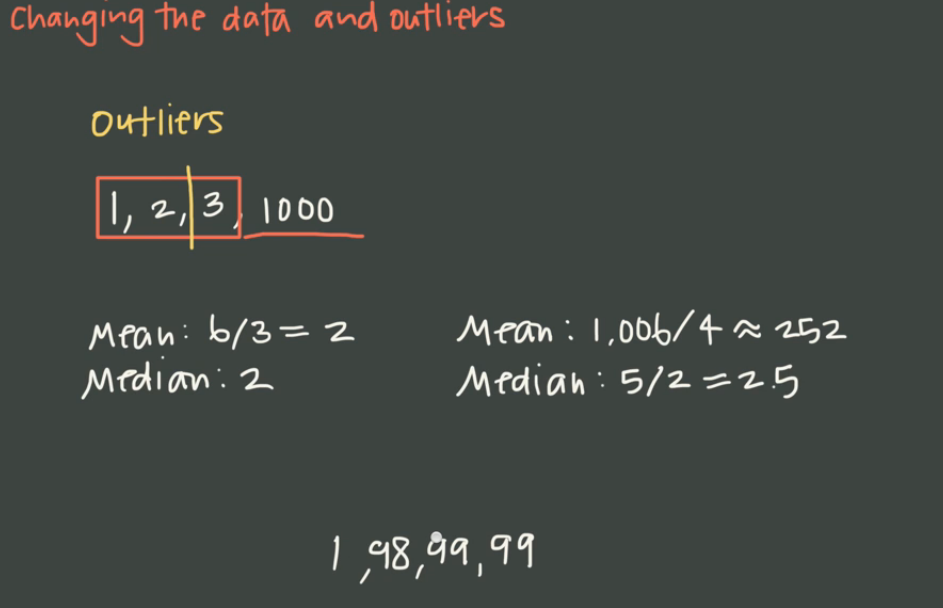 Changing the data and outliers
Outliers
1, 2, 3, 1000
Mean: 6/3 = 2
Median: 2
Mean: 1,006/4 ≈ 252
Median: 5/2 = 2.5
1,98,99,99